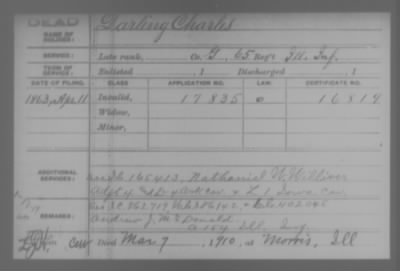 DEAD
NAME OF SOLDIER: Darling Charles
SERVICE: Late rank, Co. I, 65 Reg't Ill. Inf.
TERM OF SERVICE: Enlisted , 1 Discharged , 1
DATE OF FILING. CLASS. APPLICATION NO. LAW. CERTIFICATE NO.
1863, Apr 11 Invalid, 17835 16819
Widow,
Minor,
ADDITIONAL SERVICES: 165413, Nathaniel W. Williver
Cav. + L 1 Iowa Cav.
REMARKS: 402045
Andrew J. McDonald
Ill. Inf.
Died Mar. 7, 1910, at Morris, Ill